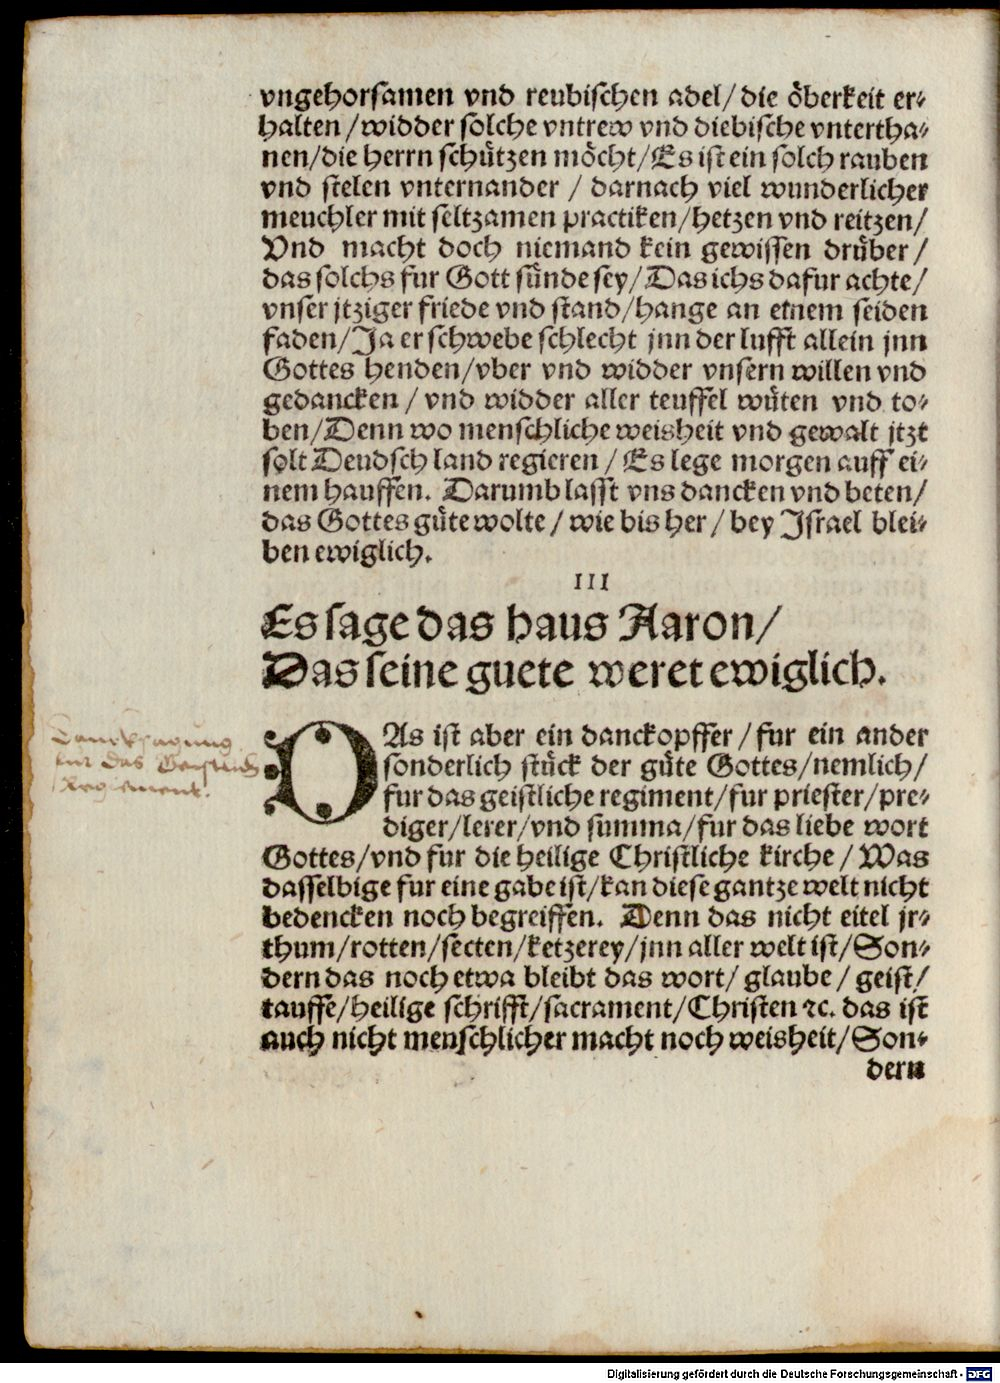 vngehorsamen vnd reubischen adel/ die öberkeit er⸗
halten /widder solche vntrew vnd diebische vntertha⸗
nen/die herrn schützen möcht/Es ist ein solch rauben
vnd stelen vnternander / darnach viel wunderlicher
meuchler mit seltzamen practiken/hetzen vnd reitzen/
Vnd macht doch niemand kein gewissen drüber /
das solchs fur Gott sünde sey/Das ichs dafur achte/
vnser jtziger friede vnd stand/hange an einem seiden
faden/Ja er schwebe schlecht jnn der lufft allein jnn
Gottes henden/vber vnd widder vnsern willen vnd
gedancken / vnd widder aller teuffel wüten vnd to⸗
ben/Denn wo menschliche weisheit vnd gewalt jtzt
solt Deudsch land regieren / Es lege morgen auff ei⸗
nem hauffen. Darumb lasst vns dancken vnd beten/
das Gottes güte wolte / wie bis her / bey Israel blei⸗
ben ewiglich.
III
Es sage das haus Aaron/
Das seine guete weret ewiglich.
Dancksagung
fur das Geistlich
Regiment.
DAs ist aber ein danckopffer / fur ein ander
sonderlich stück der güte Gottes/nemlich/
fur das geistliche regiment/fur priester/pre⸗
diger/lerer/vnd summa/fur das liebe wort
Gottes/vnd fur die heilige Christliche kirche / Was
dasselbige fur eine gabe ist/kan diese gantze welt nicht
bedencken noch begreiffen. Denn das nicht eitel jr⸗
thum/rotten/secten/ketzerey/jnn aller welt ist/Son⸗
dern das noch etwa bleibt das wort/ glaube / geist/
tauffe/heilige schrifft/sacrament/Christen ꝛc. das ist
auch nicht menschlicher macht noch weisheit/Son⸗
dern
Digitalisierung gefördert durch die Deutsche Forschungsgemeinschaft - DFG